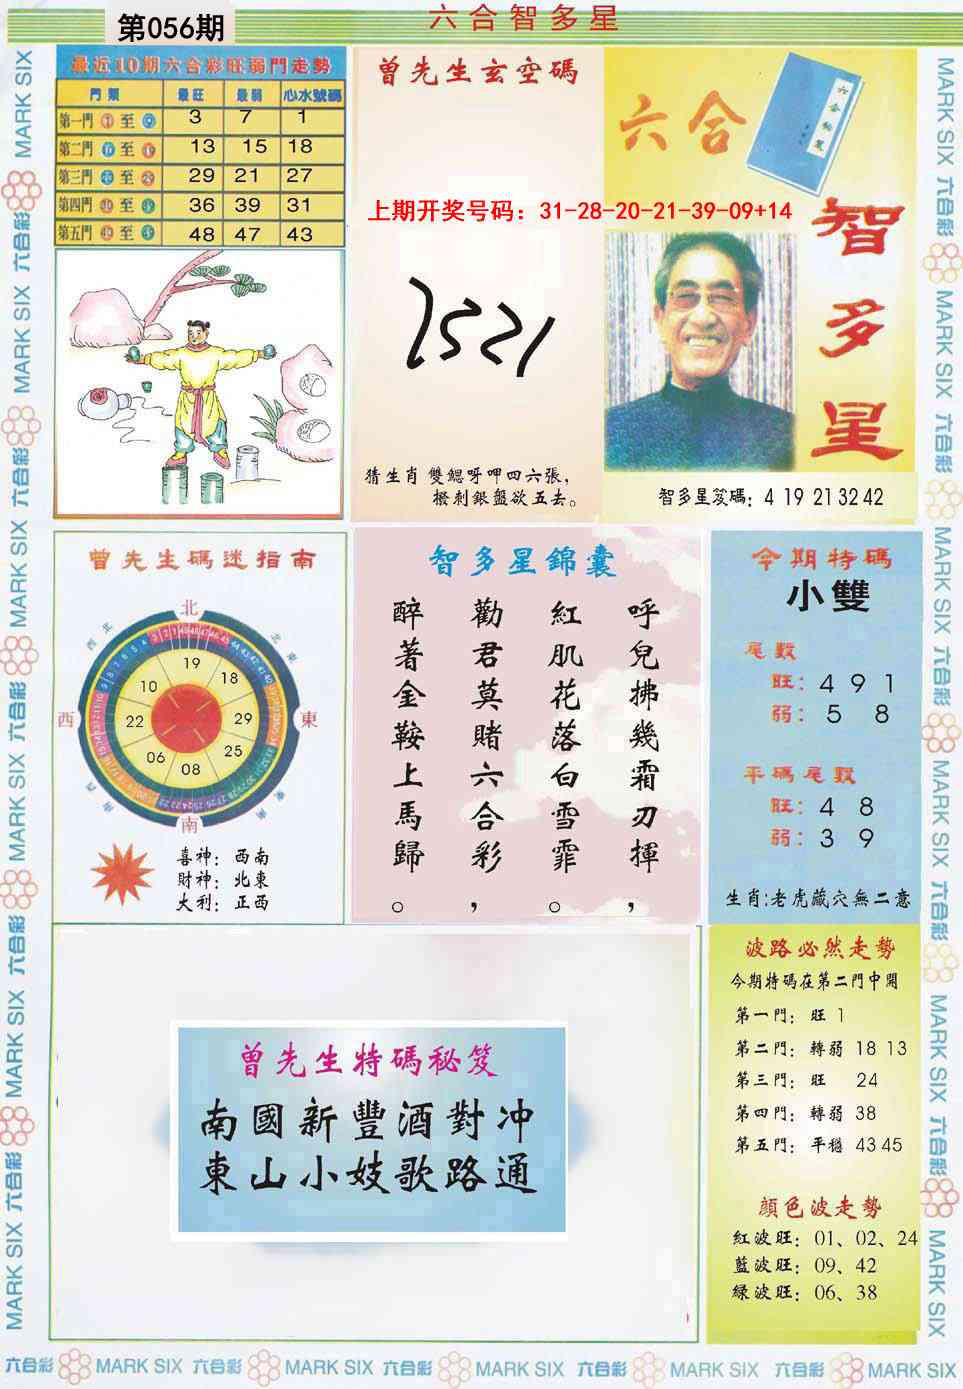 第056期
六合智多星
最近10期六合彩旺弱門走勢
門類 最旺 最弱 心水號碼
第一門 至 3 7 1
第二門 至 13 15 18
第三門 至 29 21 27
第四門 至 36 39 31
第五門 至 48 47 43
曾先生玄空碼
上期开奖号码：31-28-20-21-39-09+14
猜生肖 雙鰓呀呷四六張，
撥刺銀盤欲五去。
六合
智多星
智多星笈碼：4 19 21 32 42
曾先生碼迷指南
北
西北
東北
19
18
10
西
22
29
東
06
25
08
南
喜神：西南
財神：北東
大利：正西
智多星錦囊
呼兒拂幾霜刃揮，
紅肌花落白雪霏。
勸君莫賭六合彩，
醉著金鞍上馬歸。
今期特碼
小雙
尾數
旺：4 9 1
弱：5 8
平碼尾數
旺：4 8
弱：3 9
生肖:老虎藏穴無二意
曾先生特碼秘笈
南國新豐酒對冲
東山小妓歌路通
波路必然走勢
今期特碼在第二門中開
第一門：旺 1
第二門：轉弱 18 13
第三門：旺 24
第四門：轉弱 38
第五門：平穩 43 45
顔色波走勢
紅波旺：01、02、24
藍波旺：09、42
緑波旺：06、38
六合彩 MARK SIX 六合彩 MARK SIX 六合彩 MARK SIX 六合彩 MARK SIX 六合彩 MARK SIX